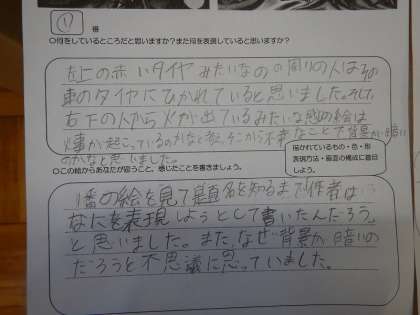 ① 番
○何をしているところだと思いますか?また何を表現していると思いますか?
左上の赤いタイヤみたいなのの周りの人はその
車のタイヤにひかれていると思いました。そして、
右下の人から火が出ているみたいな感の絵は
火事が起こっているのかなと考え、そこから不幸なことで背景が暗い
のかなと思いました。
描かれているもの・色・形
表現方法・画面の構成に着目
しよう。
○この絵からあなたが思うこと、感じたことを書きましょう。
1番の絵を見て題名を知るまで作者は
なにを表現しようとして書いたんだろう。
と思いました。また、なぜ背景が暗いの
だろうと不思議に思っていました。